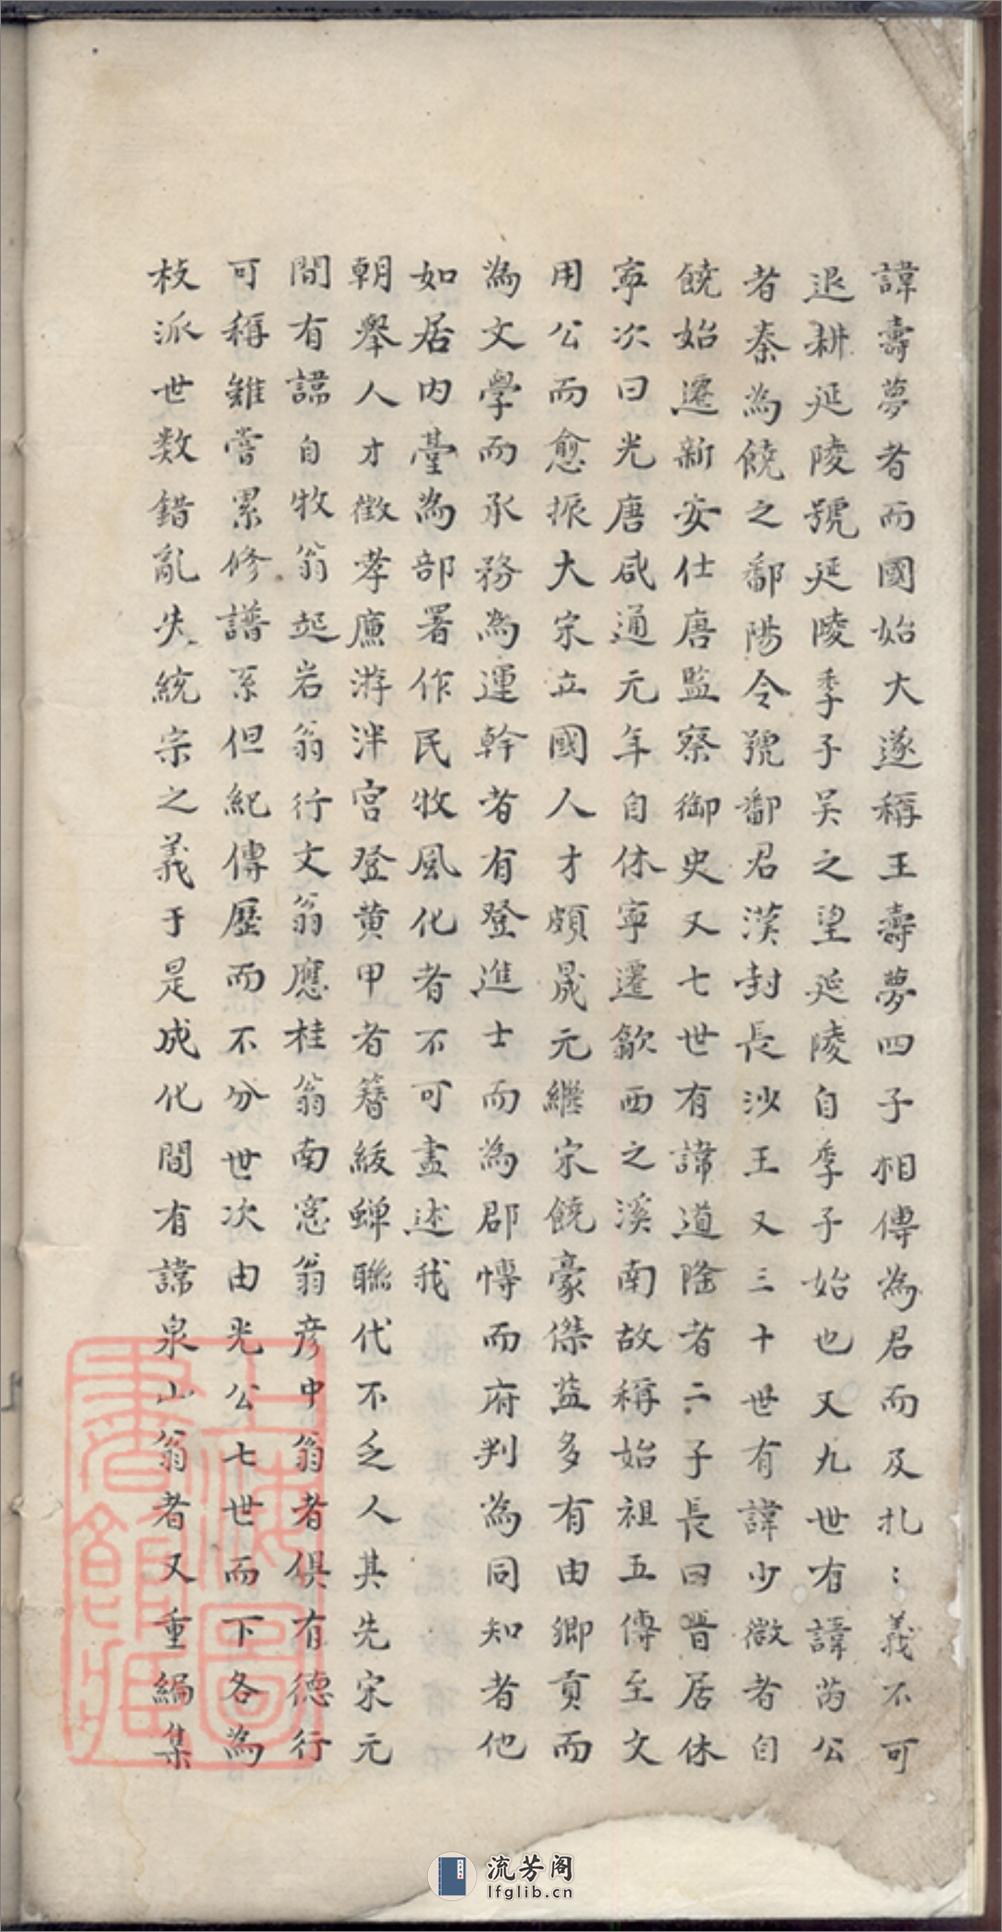 諱壽夢者而國始大遂稱王壽夢四子相傳為君而及札〻義不可
退耕延陵號延陵季子吴之望延陵自季子始也又九世有諱芮公
者秦為饒之鄱陽令號鄱君漢封長沙王又三十世有諱少微者自
饒始遷新安仕唐監察御史又七世有諱道隆者二子長曰晋居休
寧次曰光唐咸通元年自休寧遷歙西之溪南故稱始祖五傳至文
用公而愈振大宋立國人才頗晟元継宋饒豪傑益多有由鄉貢而
為文學而承務為運幹者有登進士而為郡愽而府判為同知者他
如居内臺為部署作民牧風化者不可盡述我
朝舉人才徵孝廉游泮宫登黄甲者簪綬蟬聮代不乏人其先宋元
間有諱自牧翁起岩翁行文翁應桂翁南窓翁彦中翁者俱有德行
可稱雖嘗累修譜系但紀傳歷而不分世次由光公七世而下各為
枝派世数錯亂失統宗之義于是成化間有諱泉山翁者又重編集
上海圖
書館藏
流芳阁
lfglib.cn